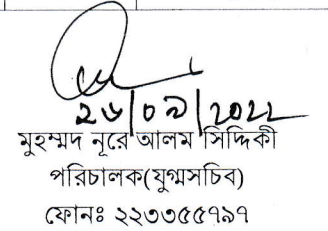 ২৬/০৯/2022
মুহম্মদ নূরে আলম সিদ্দিকী
পরিচালক(যুগ্মসচিব)
ফোনঃ ২২৩৩৫৫৭৯৭